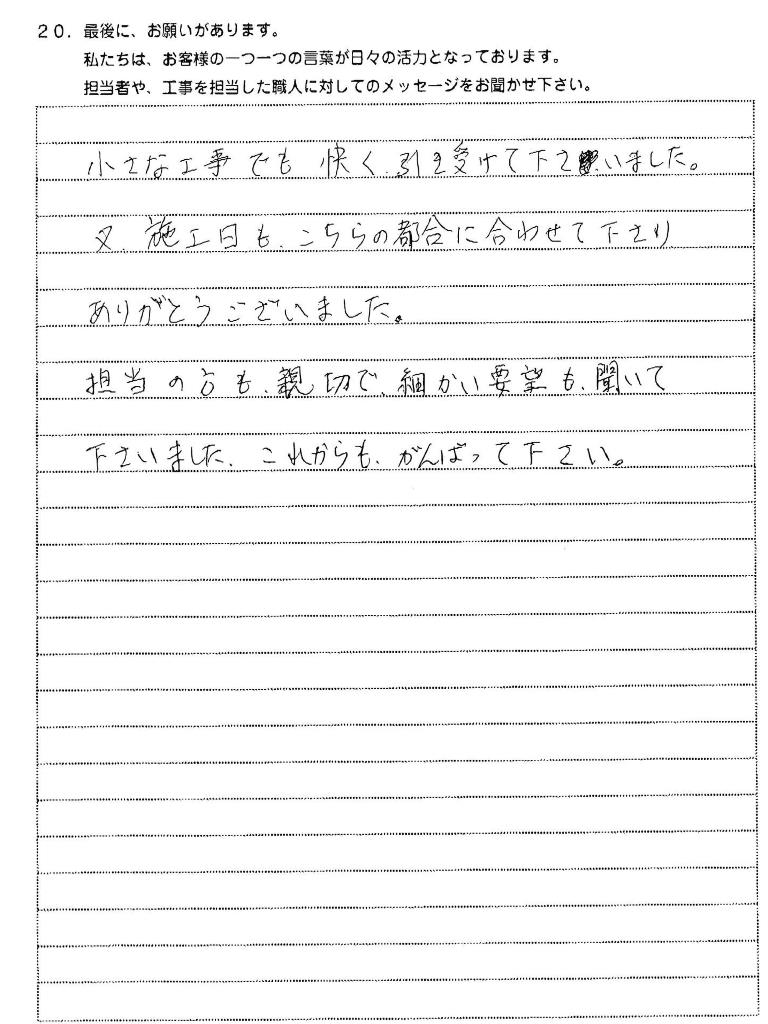 20. 最後に、お願いがあります。
私たちは、お客様の一つ一つの言葉が日々の活力となっております。
担当者や、工事を担当した職人に対してのメッセージをお聞かせ下さい。
小さな工事でも 快く、引き受けて下さいました。
又、施工日も、こちらの都合に合わせて下さり
ありがとうございました。
担当の方も、親切で、細かい要望も、聞いて
下さいました、これからも、がんばって下さい。